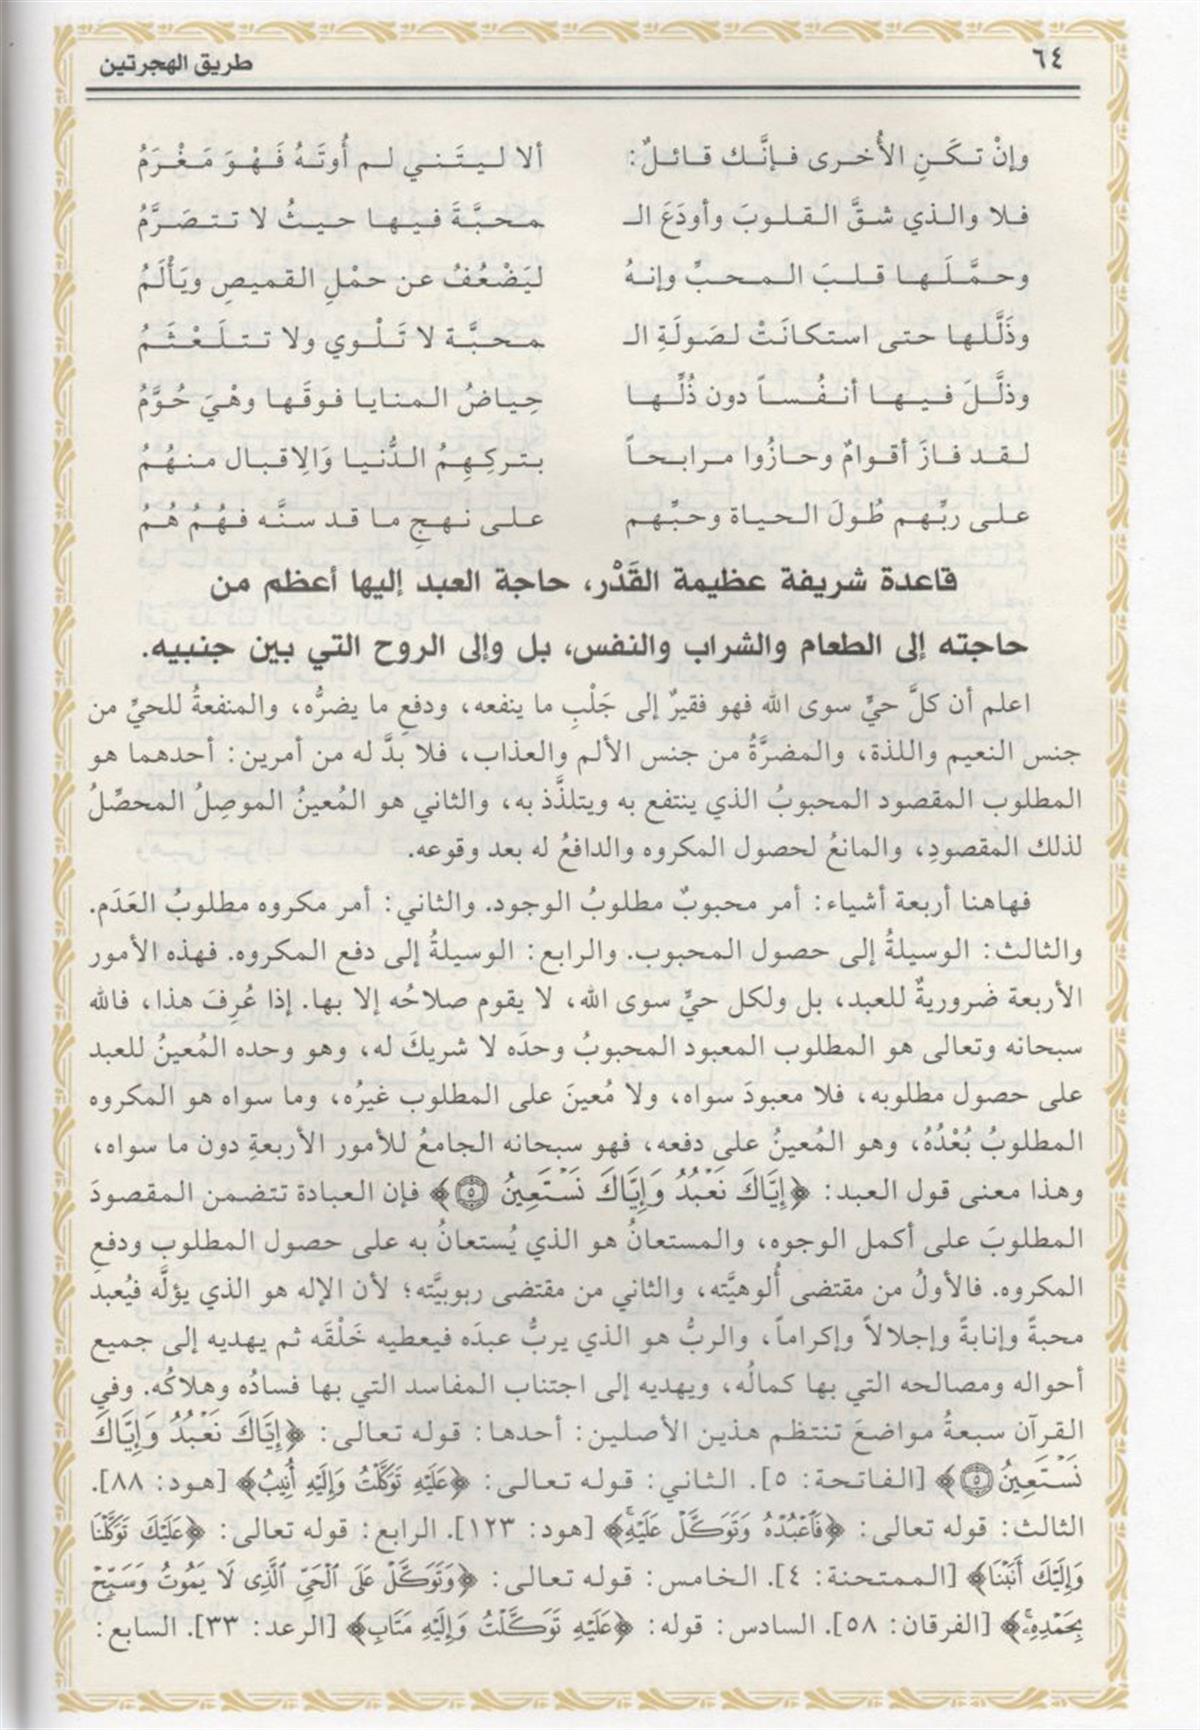 ٦٤ طريق الهجرتين
وإنْ تكَنِ الأُخرى فإنَّك قائلٌ: ألا ليتَني لم أُوتَهُ فَهْوَ مَغْرَمُ
فلا والذي شقَّ القلوبَ وأودَعَ الـ ـمحبَّةَ فيها حيثُ لا تتصَرَّمُ
وحمَّلَها قلبَ المحبِّ وإنهُ ليَضْعُفُ عن حمْلِ القميصِ ويَأْلَمُ
وذَلَّلها حتى استكانَتْ لصَولَةِ الـ ـمحبَّةِ لا تَلْوي ولا تتلَعْثَمُ
وذلَّلَ فيها أنفُساً دون ذُلِّها حِياضُ المنايا فوقَها وهْيَ حُوَّمُ
لقد فازَ أقوامٌ وحازُوا مرابحاً بتركِهِمُ الدُّنيا وَالِاقبال منهُمُ
على ربِّهم طُولَ الحياة وحبِّهم على نهجِ ما قد سنَّه فهُمُ هُمُ
قاعدة شريفة عظيمة القَدْر، حاجة العبد إليها أعظم من
حاجته إلى الطعام والشراب والنفس، بل وإلى الروح التي بين جنبيه.
اعلم أن كلَّ حيٍّ سوى الله فهو فقيرٌ إلى جَلْبِ ما ينفعه، ودفعِ ما يضرُّه، والمنفعةُ للحيِّ من
جنس النعيم واللذة، والمضرَّةُ من جنس الألم والعذاب، فلا بدَّ له من أمرين: أحدهما هو
المطلوب المقصود المحبوبُ الذي ينتفع به ويتلذَّذ به، والثاني هو المُعينُ الموصِلُ المحصِّلُ
لذلك المقصودِ، والمانعُ لحصول المكروه والدافعُ له بعد وقوعه.
فهاهنا أربعة أشياء: أمر محبوبٌ مطلوبُ الوجود. والثاني: أمر مكروه مطلوبُ العَدَم.
والثالث: الوسيلةُ إلى حصول المحبوب. والرابع: الوسيلةُ إلى دفع المكروه. فهذه الأمور
الأربعة ضَروريةٌ للعبد، بل ولكل حيٍّ سوى الله، لا يقوم صلاحُه إلا بها. إذا عُرِفَ هذا، فالله
سبحانه وتعالى هو المطلوب المعبود المحبوبُ وحدَه لا شريكَ له، وهو وحده المُعينُ للعبد
على حصول مطلوبه، فلا معبودَ سواه، ولا مُعينَ على المطلوب غيرُه، وما سواه هو المكروه
المطلوبُ بُعْدُهُ، وهو المُعينُ على دفعه، فهو سبحانه الجامعُ للأمور الأربعةِ دون ما سواه،
وهذا معنى قول العبد: ﴿إِيَّاكَ نَعْبُدُ وَإِيَّاكَ نَسْتَعِينُ ۝٥﴾ فإن العبادة تتضمن المقصودَ
المطلوبَ على أكمل الوجوه، والمستعانُ هو الذي يُستعانُ به على حصول المطلوب ودفعِ
المكروه. فالأولُ من مقتضى أُلوهيَّته، والثاني من مقتضى ربوبيَّته؛ لأن الإله هو الذي يؤلَّه فيُعبد
محبةً وإنابةً وإجلالاً وإكراماً، والربُّ هو الذي يربُّ عبدَه فيعطيه خَلْقَه ثم يهديه إلى جميع
أحواله ومصالحه التي بها كمالُه، ويهديه إلى اجتناب المفاسد التي بها فسادُه وهلاكُه. وفي
القرآن سبعةُ مواضعَ تنتظم هذين الأصلين: أحدها: قوله تعالى: ﴿إِيَّاكَ نَعْبُدُ وَإِيَّاكَ
نَسْتَعِينُ ۝٥﴾ [الفاتحة: ٥]. الثاني: قوله تعالى: ﴿عَلَيْهِ تَوَكَّلْتُ وَإِلَيْهِ أُنِيبُ﴾ [هود: ٨٨].
الثالث: قوله تعالى: ﴿فَاعْبُدْهُ وَتَوَكَّلْ عَلَيْهِ﴾ [هود: ١٢٣]. الرابع: قوله تعالى: ﴿عَلَيْكَ تَوَكَّلْنَا
وَإِلَيْكَ أَنَبْنَا﴾ [الممتحنة: ٤]. الخامس: قوله تعالى: ﴿وَتَوَكَّلْ عَلَى ٱلْحَيِّ ٱلَّذِى لَا يَمُوتُ وَسَبِّحْ
بِحَمْدِهِ﴾ [الفرقان: ٥٨]. السادس: قوله: ﴿عَلَيْهِ تَوَكَّلْتُ وَإِلَيْهِ مَتَابِ﴾ [الرعد: ٣٣]. السابع: